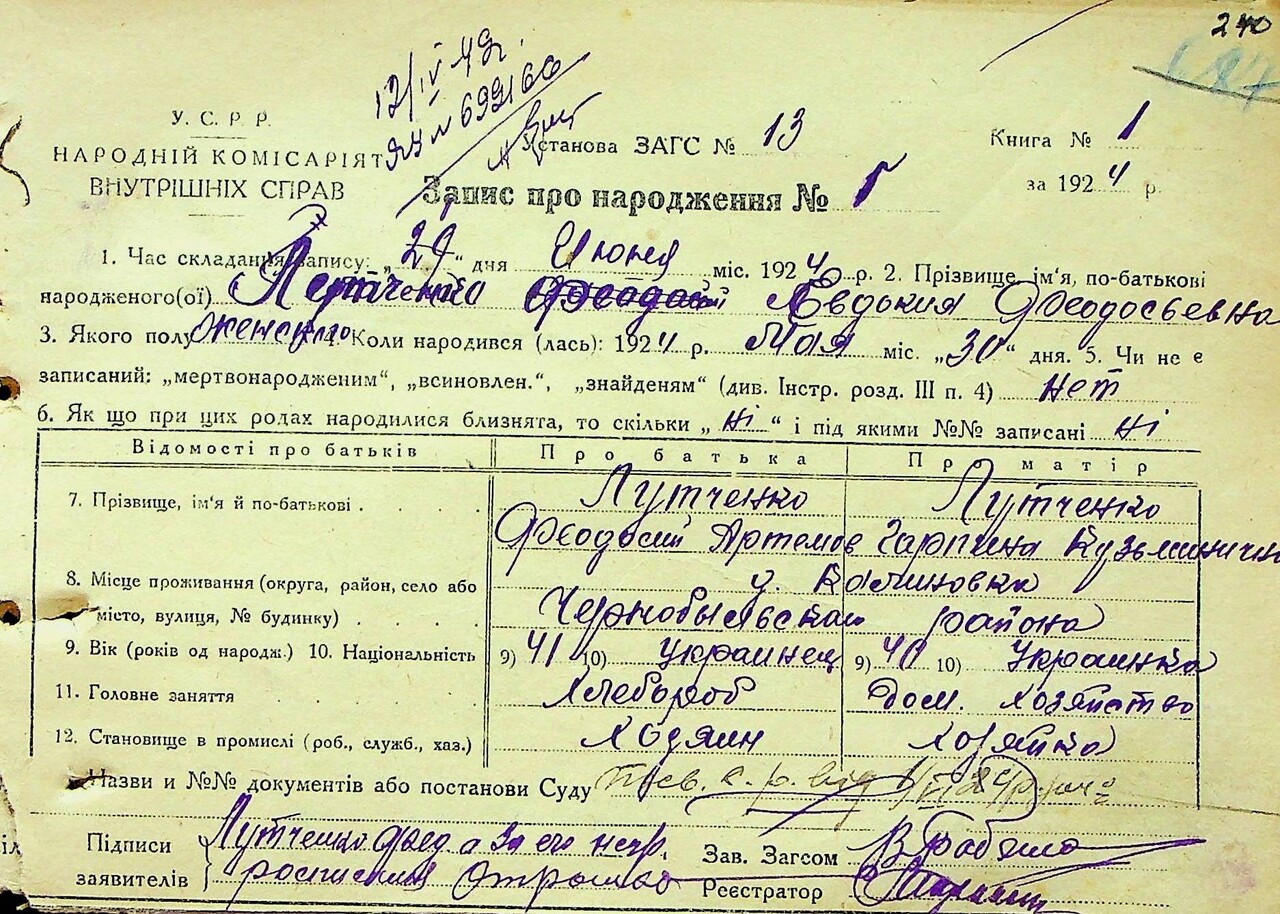 240
12/IV 49г.
ЯЧ № 699166
У. С. Р. Р.
НАРОДНІЙ КОМІСАРІЯТ
ВНУТРІШНІХ СПРАВ
Установа ЗАГС № 13
Книга № 1
за 1924 р.
Запис про народження №
1. Час складання запису: „29“ дня Июня міс. 1924 р. 2. Прізвище, ім'я, по-батькові
народженого(ої) Лутченко Феодосий Евдокия Феодосьевна
3. Якого полу женского 4. Коли народився (лась): 1924 р. Мая міс. „30“ дня. 5. Чи не є
записаний: „мертвонародженим“, „всиновлен.“, „знайденям“ (див. Інстр. розд. III п. 4) нет
6. Як що при цих родах народилися близнята, то скільки „ні“ і під якими №№ записані ні
Відомості про батьків Про батька Про матір
7. Прізвище, ім'я й по-батькові Лутченко Лутченко
Феодосий Артемов Гарпина Кузьминична
8. Місце проживання (округа, район, село або
місто, вулиця, № будинку)
Чернобыльского района
9. Вік (років од народж.) 10. Національність 9) 41 10) украинец 9) 40 10) Украинка
11. Головне заняття Хлебороб Дом. хозяйство
12. Становище в промислі (роб., служб., хаз.) Хозяин хозяйка
Назви и №№ документів або постанови Суду
Підписи
заявителів
Лутченко Фед а за его негр.
росписался
Зав. Загсом
Реєстратор